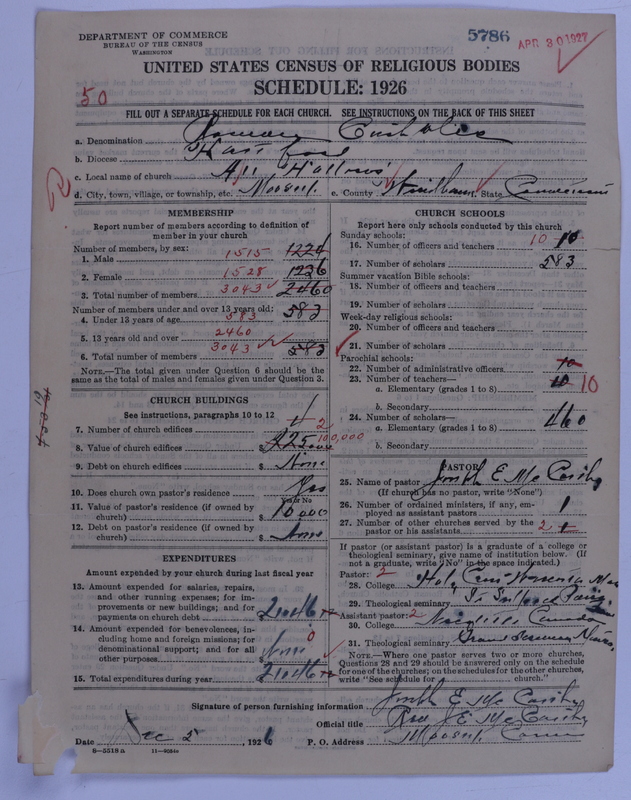 DEPARTMENT OF COMMERCE
BUREAU OF THE CENSUS
WASHINGTON
5786
APR 30 1927
UNITED STATES CENSUS OF RELIGIOUS BODIES
SCHEDULE: 1926
50
FILL OUT A SEPARATE SCHEDULE FOR EACH CHURCH. SEE INSTRUCTIONS ON THE BACK OF THIS SHEET
a. Denomination Roman Catholic
b. Diocese Hartford
c. Local name of church All Hallows
d. City, town, village, or township, etc. Moosup e. County Windham f. State Connecticut
MEMBERSHIP
Report number of members according to definition of member in your church
Number of members, by sex:
1. Male 1515 1224
2. Female 1528 1236
3. Total number of members 3043 2460
Number of members under and over 13 years old:
4. Under 13 years of age 583 583
5. 13 years old and over 2460
6. Total number of members 3043 583
NOTE.—The total given under Question 6 should be the same as the total of males and females given under Question 3.
CHURCH BUILDINGS
See instructions, paragraphs 10 to 12
7. Number of church edifices 1 2
8. Value of church edifices $ 100,000
9. Debt on church edifices $ None
10. Does church own pastor's residence Yes
Yes or No
11. Value of pastor's residence (if owned by church) $ 10000
12. Debt on pastor's residence (if owned by church) $ None
EXPENDITURES
Amount expended by your church during last fiscal year
13. Amount expended for salaries, repairs, and other running expenses; for improvements or new buildings; and for payments on church debt $
14. Amount expended for benevolences, including home and foreign missions; for denominational support; and for all other purposes $ None 0
15. Total expenditures during year $
CHURCH SCHOOLS
Report here only schools conducted by this church
Sunday schools:
16. Number of officers and teachers 10 10
17. Number of scholars 583
Summer vacation Bible schools:
18. Number of officers and teachers
19. Number of scholars
Week-day religious schools:
20. Number of officers and teachers
21. Number of scholars
Parochial schools:
22. Number of administrative officers 10
23. Number of teachers—
a. Elementary (grades 1 to 8) 10 10
b. Secondary
24. Number of scholars—
a. Elementary (grades 1 to 8) 460
b. Secondary
PASTOR
25. Name of pastor Joseph E McCarthy
(If church has no pastor, write "None")
26. Number of ordained ministers, if any, employed as assistant pastors 1
27. Number of other churches served by the pastor or his assistants 2 1
If pastor (or assistant pastor) is a graduate of a college or theological seminary, give name of institution below. (If not a graduate, write "No" in the space indicated.)
Pastor: 2
28. College Holy Cross Worcester Mass
29. Theological seminary St Sulpice Paris
Assistant pastor: 2
30. College Canada
31. Theological seminary Grand Seminary
NOTE.—Where one pastor serves two or more churches, Questions 28 and 29 should be answered only on the schedule for one of the churches; on the schedules for the other churches, write "See schedule for ______ church."
Signature of person furnishing information Joseph E McCarthy
Official title Rev J E McCarthy
Date Dec 5, 1926 P. O. Address Moosup Conn
6—5518a 11—9034a